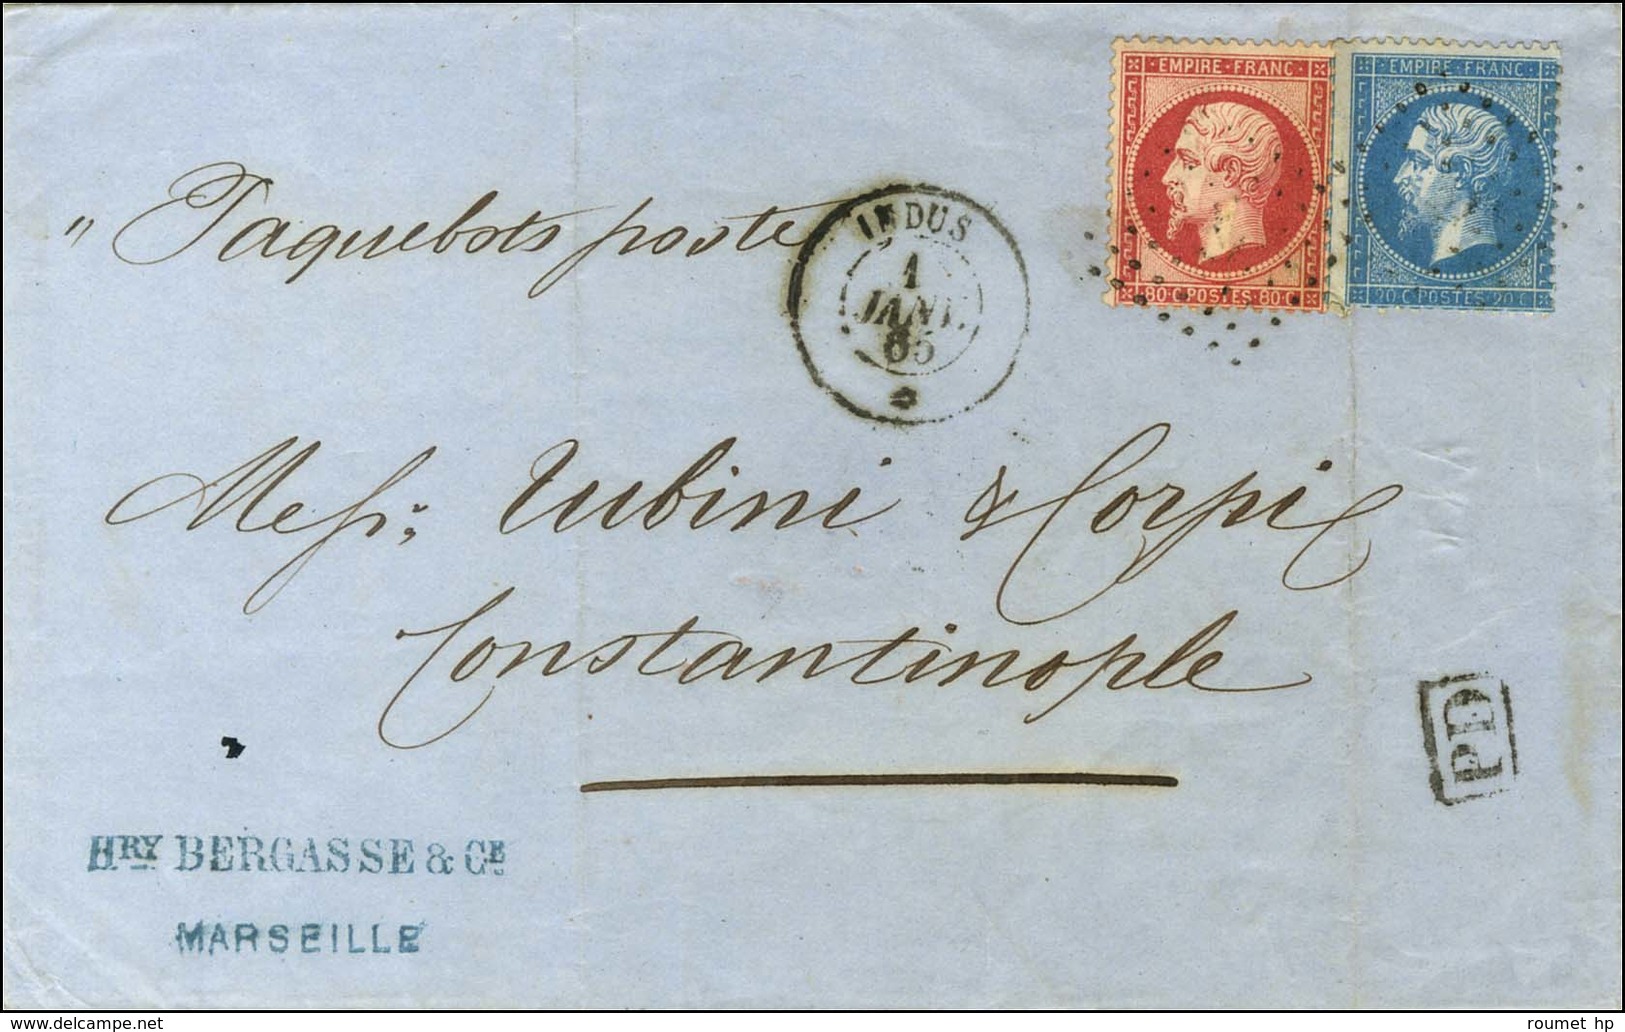 EMPIRE FRANC
80 C POSTES 80 C
EMPIRE FRANC
20 C POSTES 20 C
" Paquebots poste
INDUS
1
JANV.
65
Messrs. Tubini & Corpi
Constantinople
PD
HRY BERGASSE & CE
MARSEILLE
www.delcampe.net
roumet hp